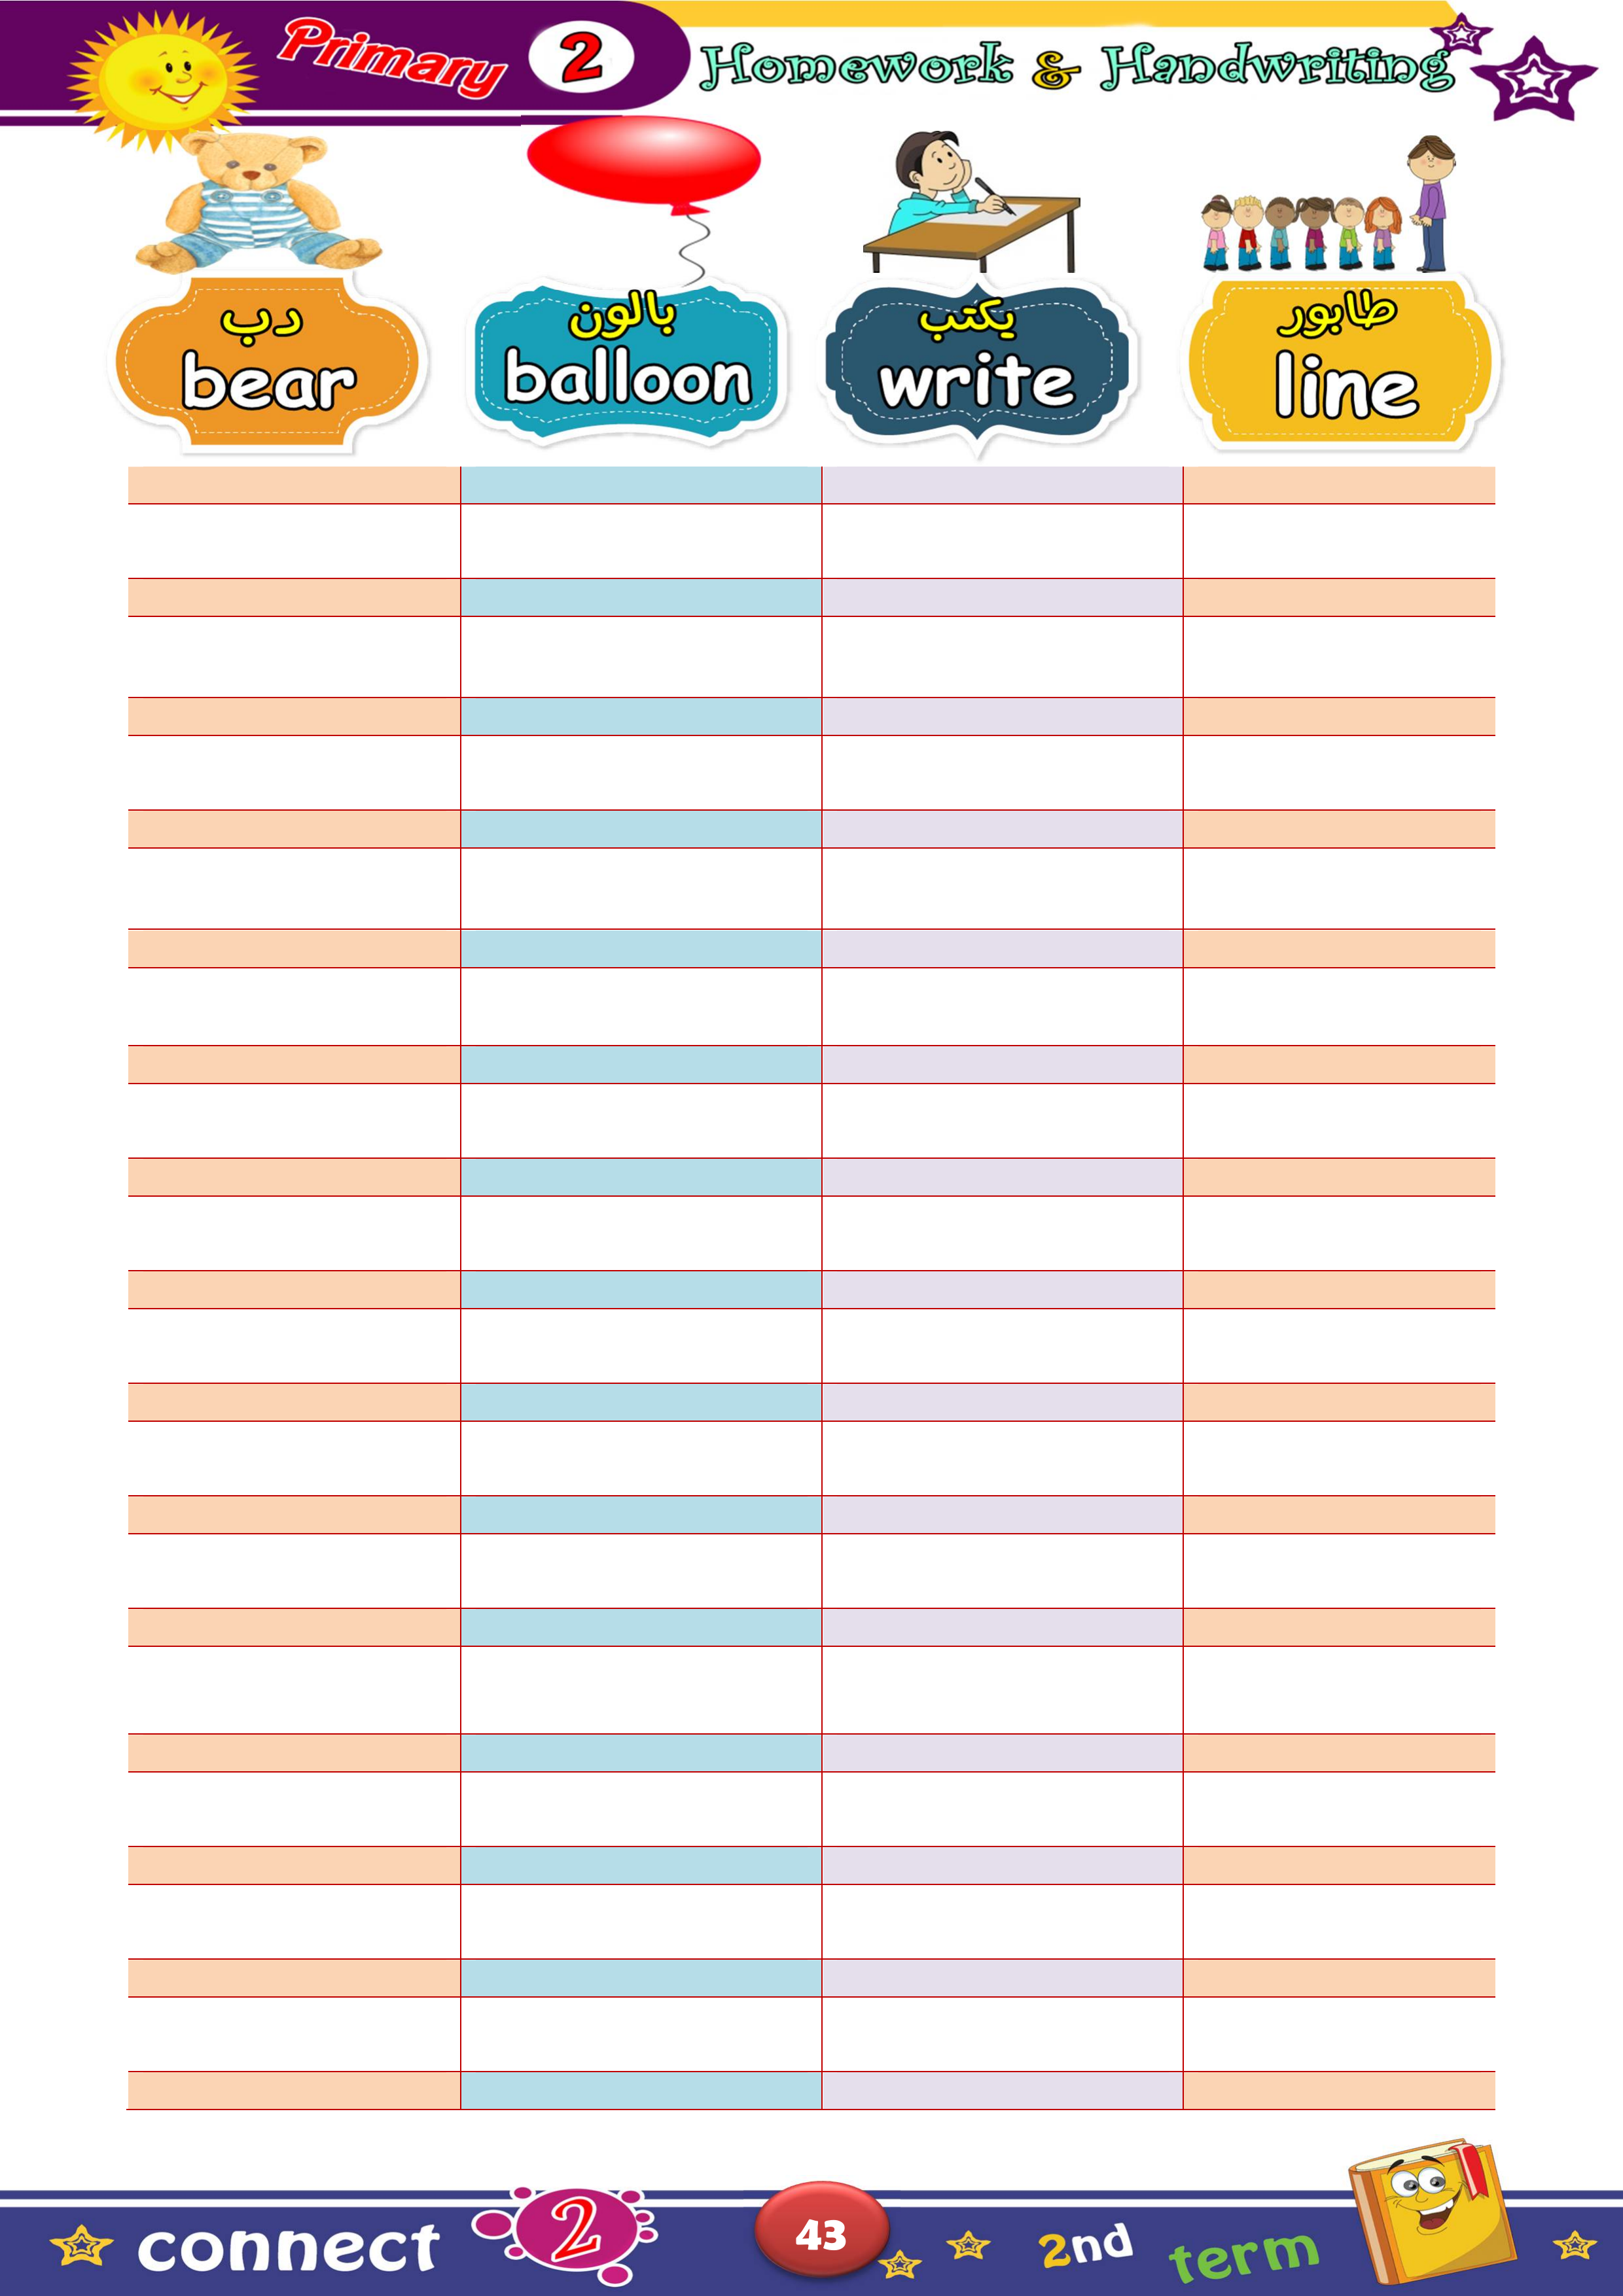 Primary 2 Homework & Handwriting
دب
بالون
يكتب
طابور
bear
balloon
write
line
connect 2
43
2nd term